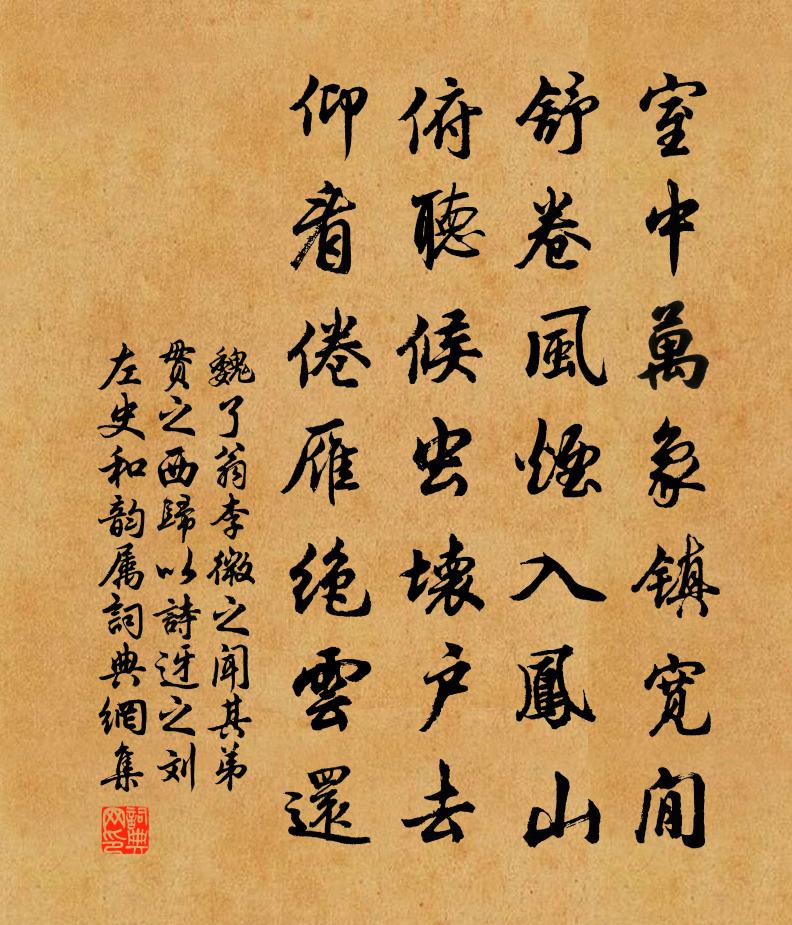 室中萬象鎮寬閒
舒卷風煙入鳳山
俯聽候虫壞户去
仰看倦雁絕雲還
魏了翁李微之聞其弟
貫之西歸以詩迓之刘
左史和韵属詞典網集
詞典网印